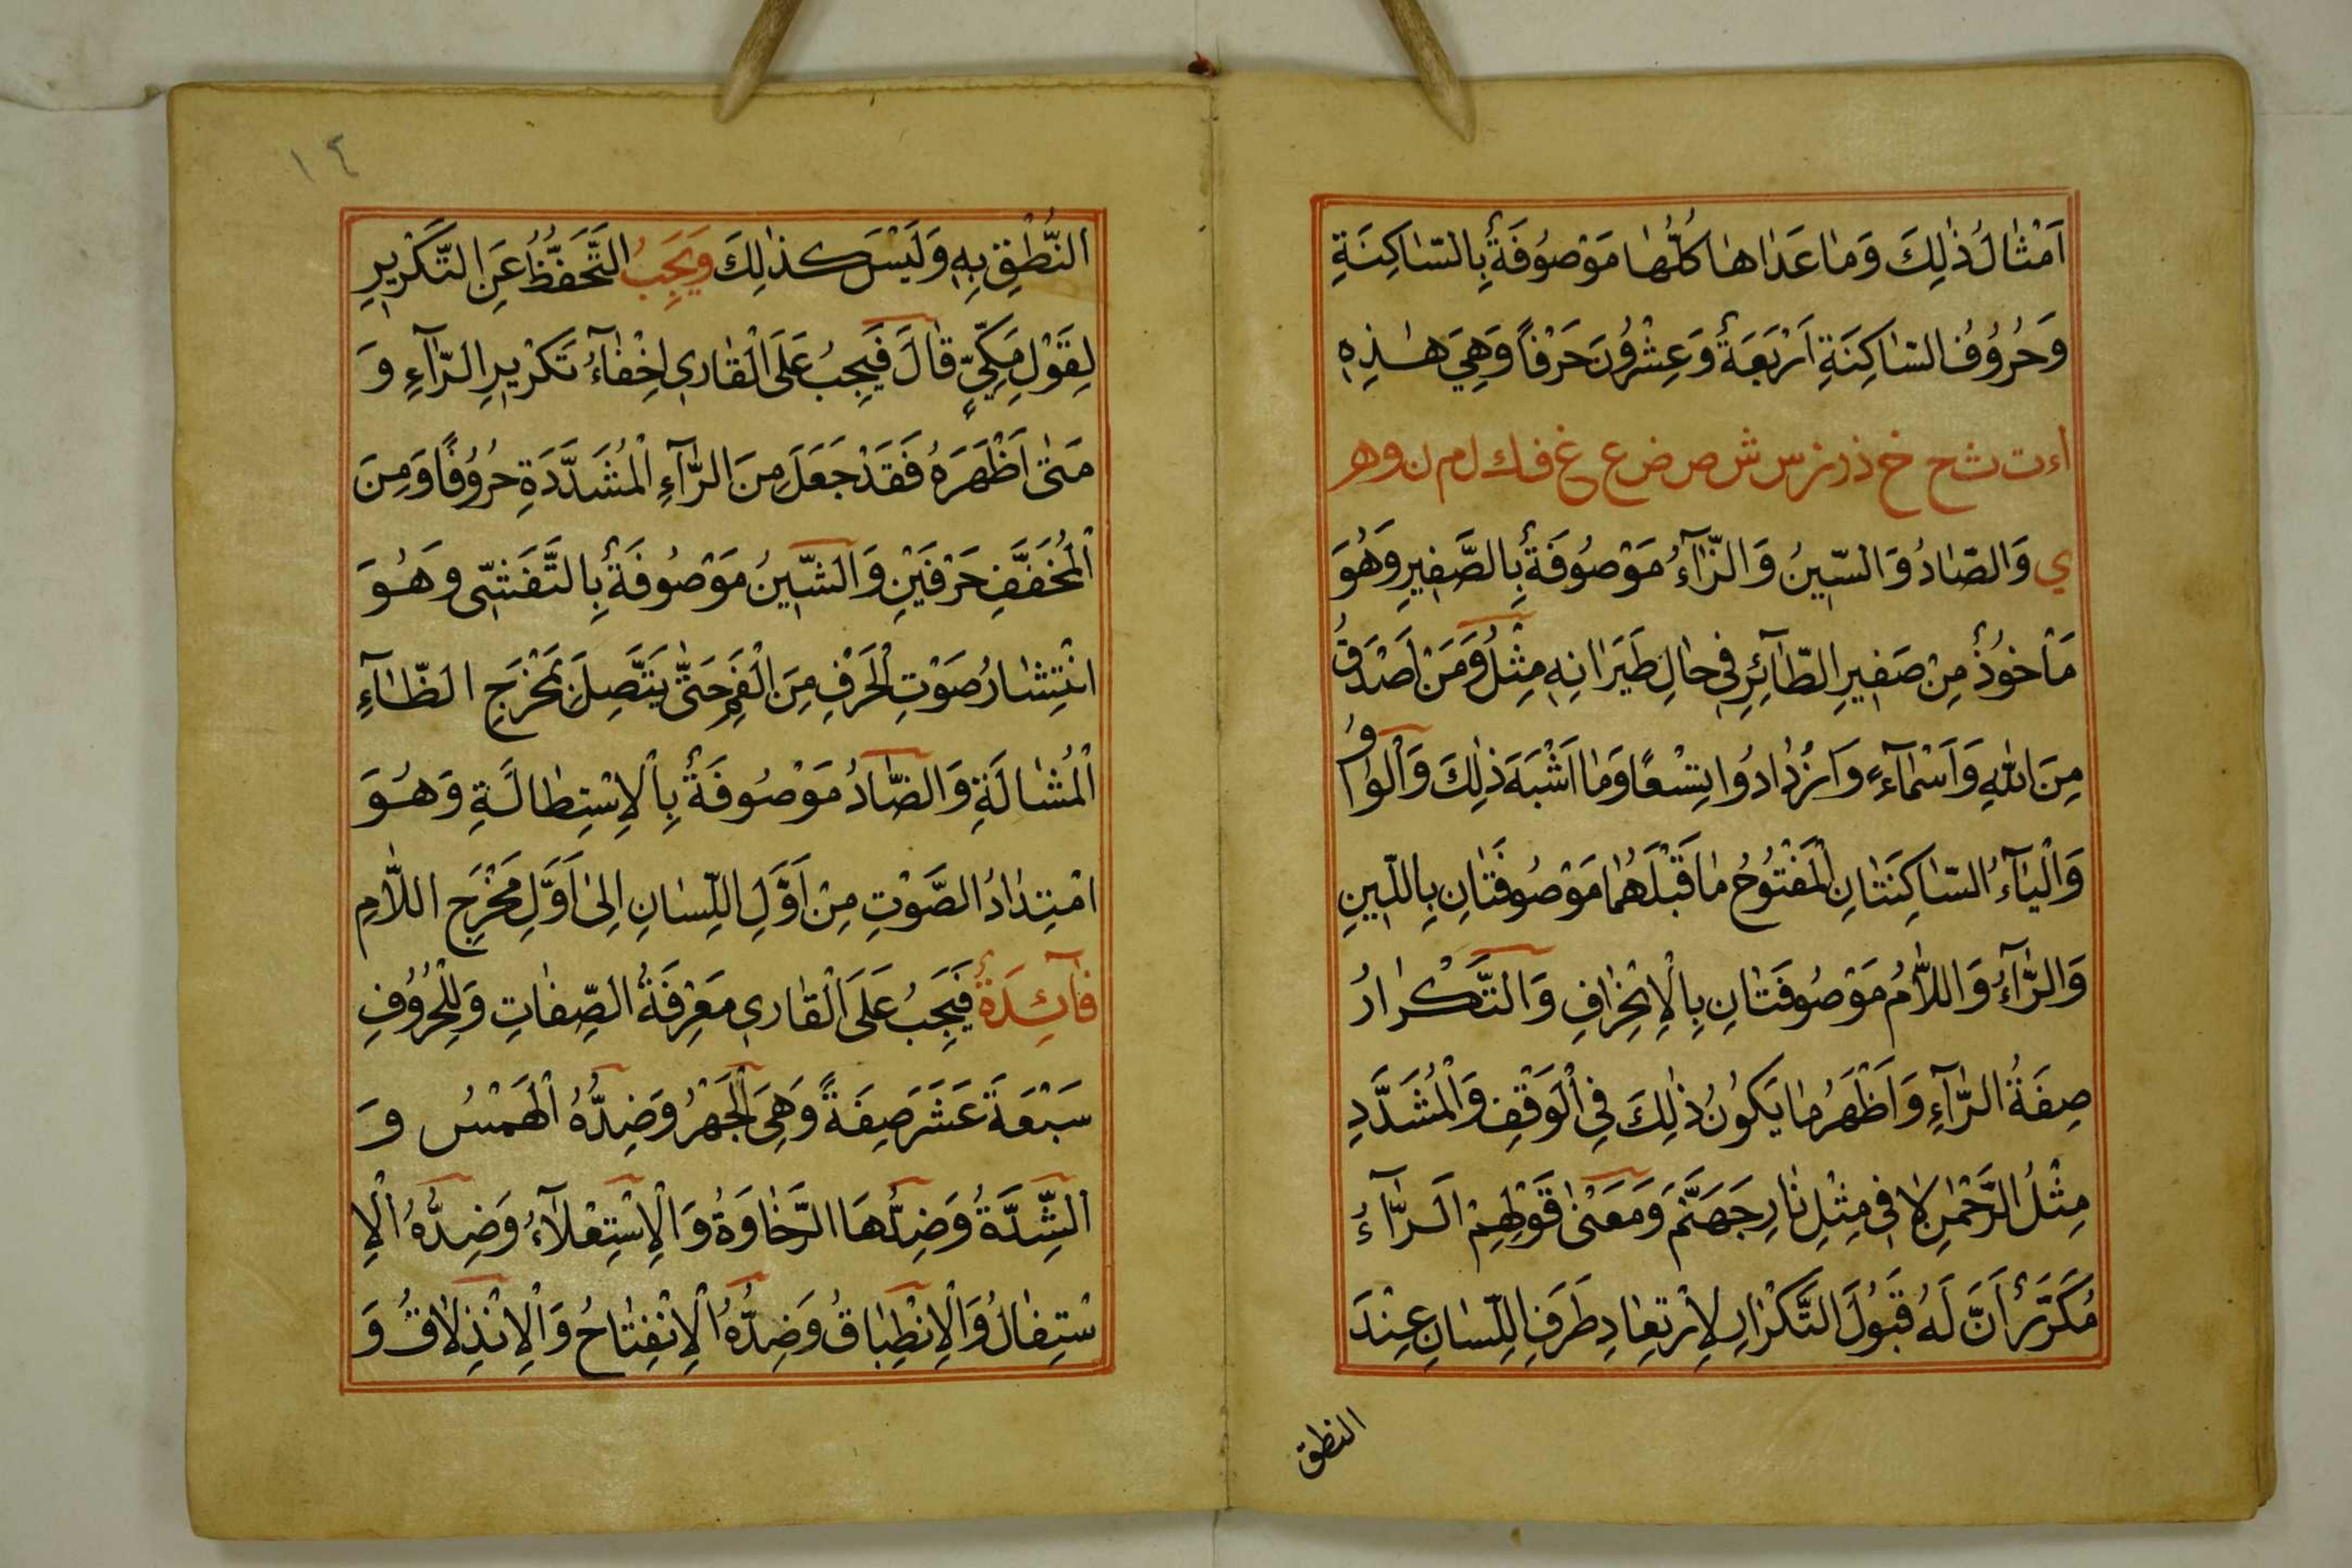 اَمْثٰالُ ذٰلِكَ وَمٰا عَدٰاهٰا كُلُّهٰا مَوْصُوفَةٌ بِالسّٰاكِنَةِ
وَحُرُوُفُ السّٰاكِنَةِ اَرْبَعَةٌ وَعِشْرُونَ حَرْفاً وَهِيَ هٰذِهِ
اء ت ث ح خ ذ ر ز س ش ص ض ع غ ف ك ل م ن و هـ
ي وَالصّٰادُ وَالسّٖينُ وَالزّٰآءُ مَوْصُوفَةٌ بِالصَّفٖيرِ وَهُوَ
مَأْخُوذٌ مِنْ صَفٖيرِ الطّٰآئِرِ فٖي حٰالِ طَيَرٰانِهِ مِثْلُ وَمَنْ اَصْدَقُ
مِنَ اللّٰهِ وَاَسْمٰآءٍ وَازْدٰادُوا تِسْعًا وَمٰا اَشْبَهَ ذٰلِكَ وَالْوٰاوُ
وَالْيٰآءُ السّٰاكِنَتٰانِ الْمَفْتُوُحُ مٰا قَبْلَهُمٰا مَوْصُوفَتٰانِ بِاللّٖينِ
وَالرّٰآءُ وَاللّٰامُ مَوْصُوفَتٰانِ بِالْاِنْحِرٰافِ وَالتَّكْرٰارُ
صِفَةُ الرّٰآءِ وَاَظْهَرُ مٰا يَكُونُ ذٰلِكَ فِي الْوَقْفِ وَالْمُشَدَّدِ
مِثْلُ الرَّحْمٰنِ لٰا فٖي مِثْلِ نٰارِ جَهَنَّمَ وَمَعْنٰى قَوْلِهِمْ اَلرّٰآءُ
مُكَرَّرٌ اَنَّ لَهُ قَبُولَ التَّكْرٰارِ لِارْتِعٰادِ طَرَفِ اللِّسٰانِ عِنْدَ
النطق
١٤
النُّطْقِ بِهٖ وَلَيْسَ كَذٰلِكَ وَيَجِبُ التَّحَفُّظُ عَنِ التَّكْرٖيرِ
لِقَوْلِ مَكِّيٍّ قٰالَ فَيَجِبُ عَلَى الْقٰارٖي اِخْفٰآءُ تَكْرٖيرِ الرّٰآءِ وَ
مَتٰى اَظْهَرَهُ فَقَدْ جَعَلَ مِنَ الرّٰآءِ الْمُشَدَّدَةِ حُرُوُفًا وَمِنَ
الْمُخَفَّفِ حَرْفَيْنِ وَالشّٖينُ مَوْصُوفَةٌ بِالتَّفَشّٖى وَهُوَ
انْتِشٰارُ صَوْتِ الْحَرْفِ مِنَ الْفَمِ حَتّٰى يَتَّصِلَ بِمَخْرَجِ الظّٰآءِ
الْمُشٰالَةِ وَالضّٰادُ مَوْصُوفَةٌ بِالْاِسْتِطٰالَةِ وَهُوَ
امْتِدٰادُ الصَّوْتِ مِنْ اَوَّلِ اللِّسٰانِ اِلىٰ اَوَّلِ مَخْرَجِ اللّٰامِ
فٰآئِدَةٌ فَيَجِبُ عَلَى الْقٰارٖي مَعْرِفَةُ الصِّفٰاتِ وَلِلْحُرُوُفِ
سَبْعَةَ عَشَرَ صِفَةً وَهِيَ الْجَهْرُ وَضِدُّهُ الْهَمْسُ وَ
الشِّدَّةُ وَضِدُّهَا الرَّخٰاوَةُ وَالْاِسْتِعْلٰآءُ وَضِدُّهُ الْاِ
سْتِفٰالُ وَالْاِنْطِبٰاقُ وَضِدُّهُ الْاِنْفِتٰاحُ وَالْاِنْذِلٰاقُ وَ